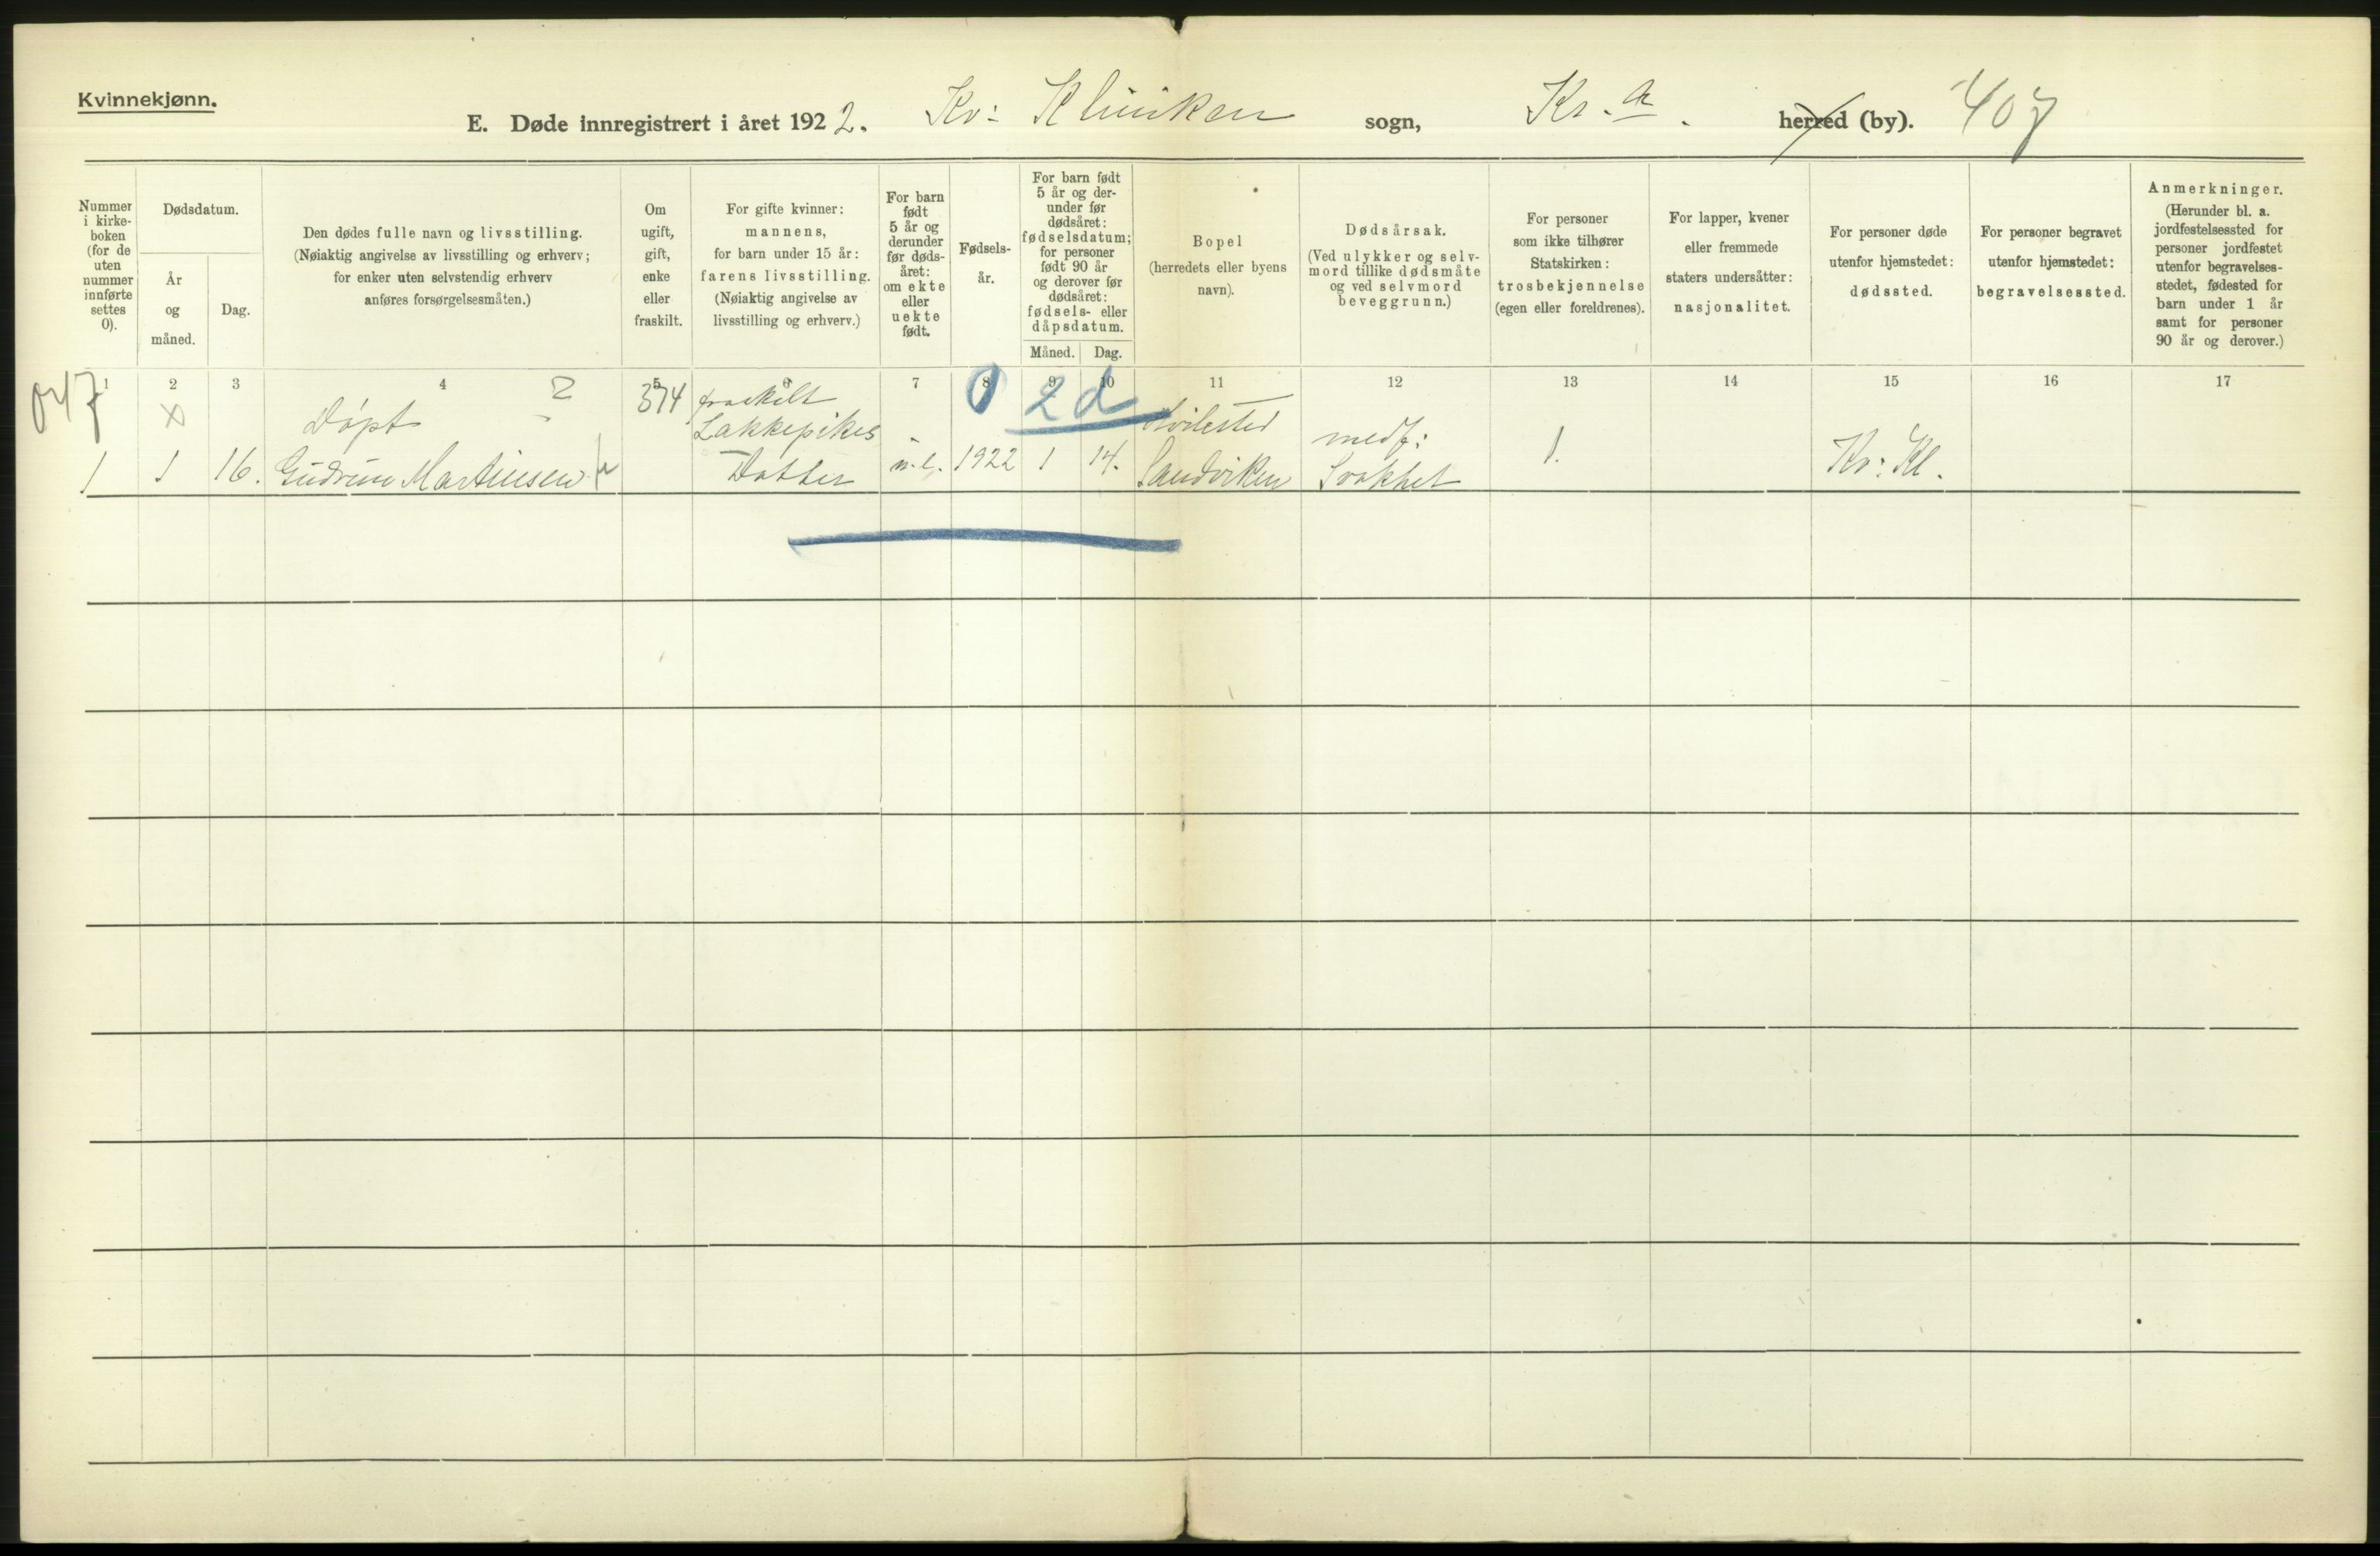 Kvinnekjønn.
E. Døde innregistrert i året 1922. Kv: Kliniken sogn, Kr.a. herred (by). 407
Nummer i kirke-boken (for de uten nummer innførte settes 0).
Dødsdatum.
År og måned.
Dag.
Den dødes fulle navn og livsstilling.
(Nøiaktig angivelse av livsstilling og erhverv;
for enker uten selvstendig erhverv
anføres forsørgelsesmåten.)
Om
ugift,
gift,
enke
eller
fraskilt.
For gifte kvinner:
mannens,
for barn under 15 år:
farens livsstilling.
(Nøiaktig angivelse av
livsstilling og erhverv.)
For barn
født
5 år og
derunder
før døds-
året:
om ekte
eller
uekte
født.
Fødsels-
år.
For barn født
5 år og der-
under før
dødsåret:
fødselsdatum;
for personer
født 90 år
og derover før
dødsåret:
fødsels- eller
dåpsdatum.
Måned. Dag.
Bopel
(herredets eller byens
navn).
Dødsårsak.
(Ved ulykker og selv-
mord tillike dødsmåte
og ved selvmord
beveggrunn.)
For personer
som ikke tilhører
Statskirken:
trosbekjennelse
(egen eller foreldrenes).
For lapper, kvener
eller fremmede
staters undersåtter:
nasjonalitet.
For personer døde
utenfor hjemstedet:
dødssted.
For personer begravet
utenfor hjemstedet:
begravelsessted.
Anmerkninger.
(Herunder bl. a.
jordfestelsessted for
personer jordfestet
utenfor begravelses-
stedet, fødested for
barn under 1 år
samt for personer
90 år og derover.)
1 2 3 4 5 6 7 8 9 10 11 12 13 14 15 16 17
x Døpt 2 374 fraskilt 0 2 d
Lakkepikes medf:
1 1 16. Gudrun Martinsen Datter u.e. 1922 1 14. Sandviken Svakhet 1. Kv: Kl.